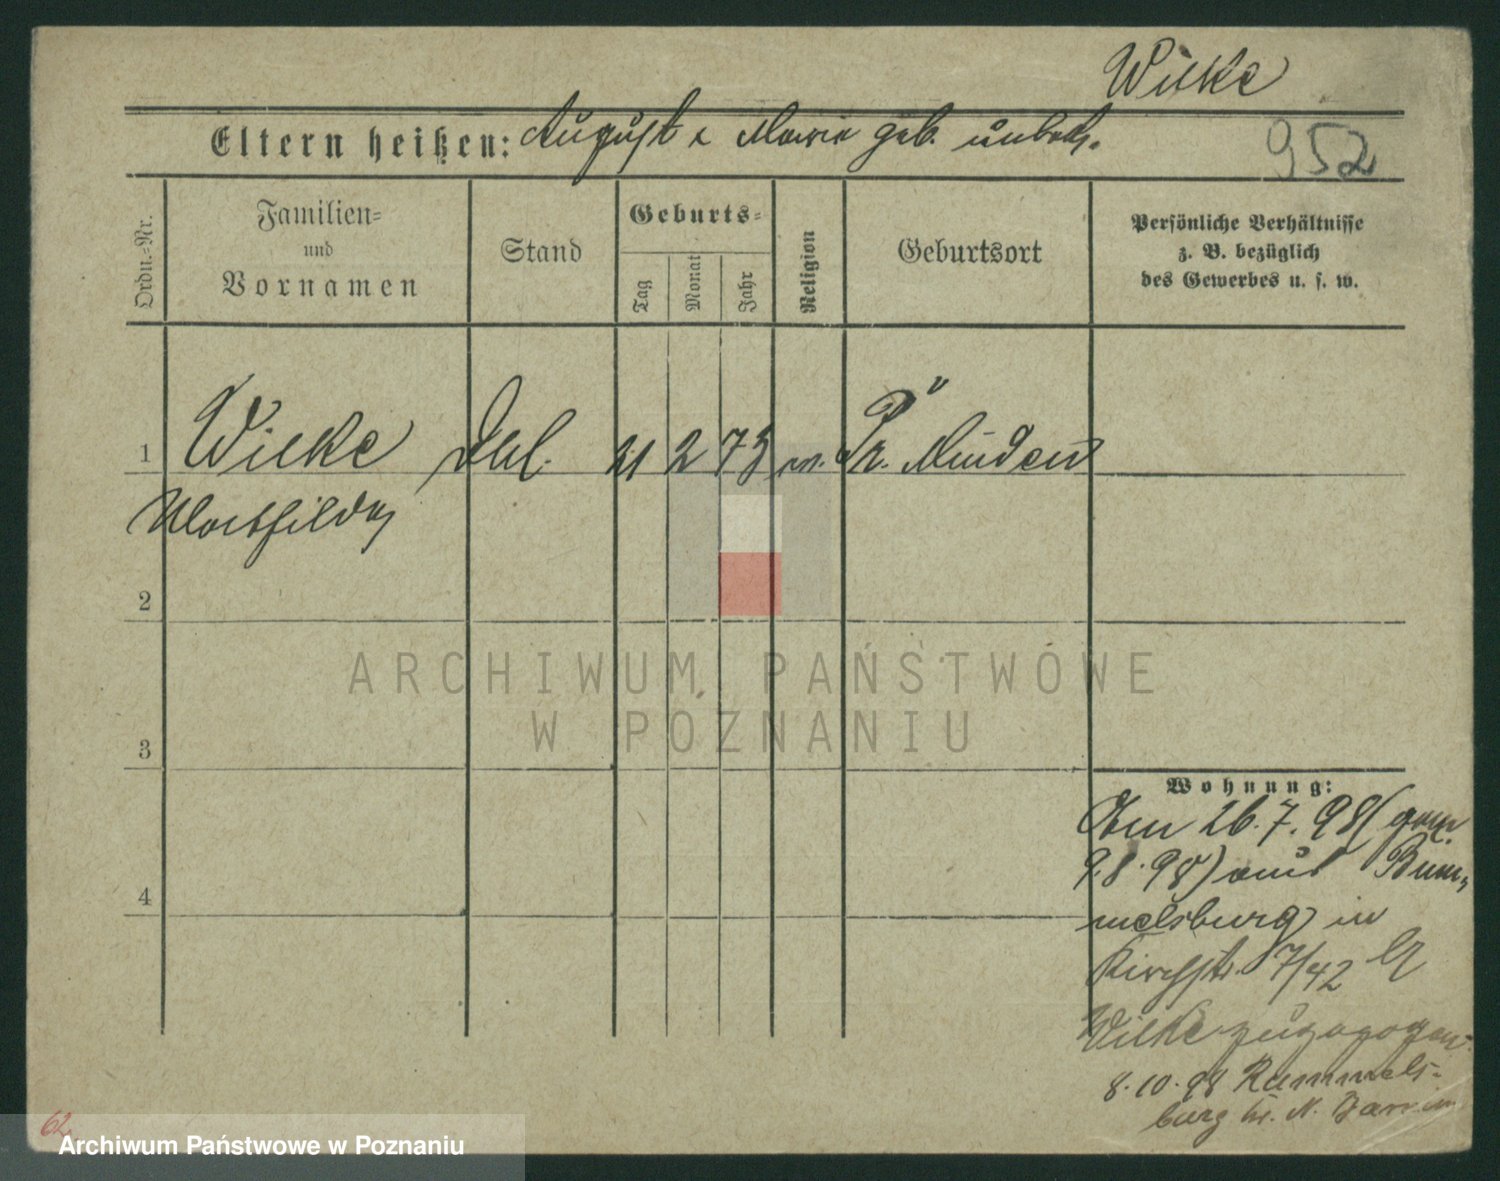 Wilke
Eltern heißen: August & Marie geb. unbek.
952
Ordn.-Nr.
Familien=
und
Vornamen
Stand
Geburts=
Tag
Monat
Jahr
Religion
Geburtsort
Persönliche Verhältnisse
z. B. bezüglich
des Gewerbes u. s. w.
1 Wilke 21 2 73 Pr. Minden
2
ARCHIWUM PAŃSTWOWE
W POZNANIU
3
Wohnung:
Am 26.7.98 (gem.
9.8.98) aus Rum-
melsburg in
Kirchstr. 7/42
4
Wilke zugezogen
8.10.98 Rummels-
burg
62
Archiwum Państwowe w Poznaniu